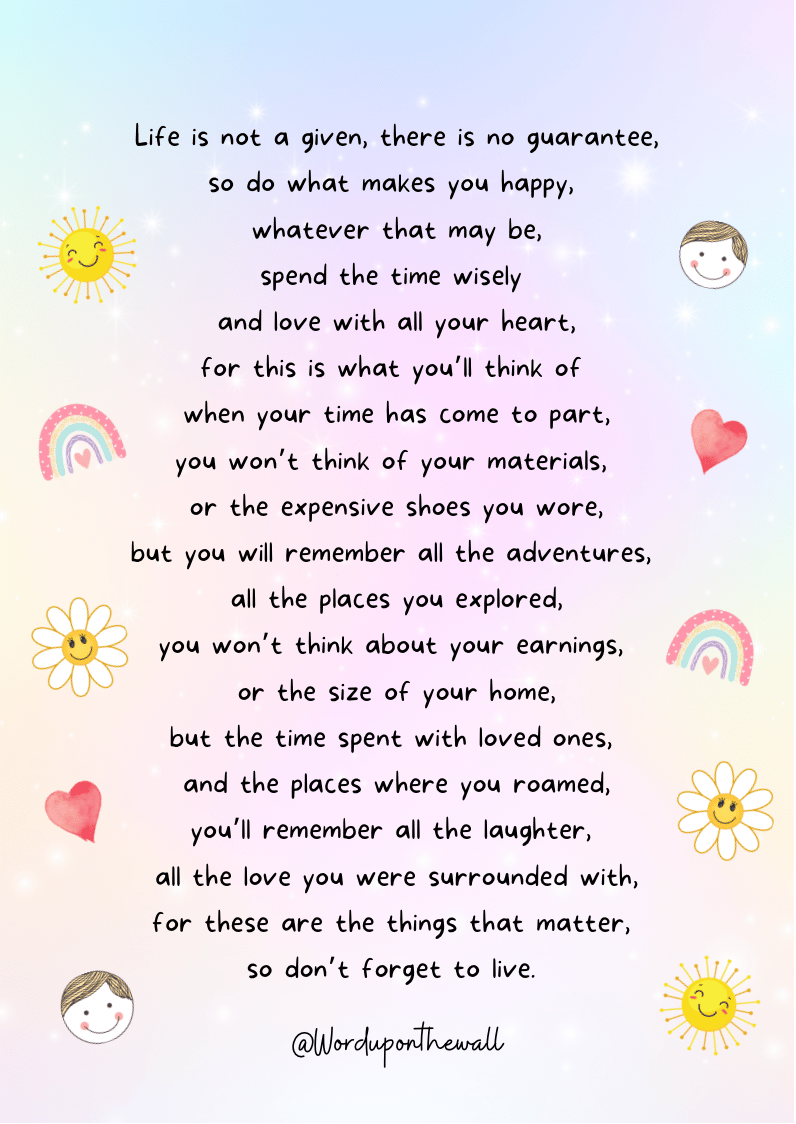 Life is not a given, there is no guarantee,
so do what makes you happy,
whatever that may be,
spend the time wisely
and love with all your heart,
for this is what you'll think of
when your time has come to part,
you won't think of your materials,
or the expensive shoes you wore,
but you will remember all the adventures,
all the places you explored,
you won't think about your earnings,
or the size of your home,
but the time spent with loved ones,
and the places where you roamed,
you'll remember all the laughter,
all the love you were surrounded with,
for these are the things that matter,
so don't forget to live.
@Worduponthewall